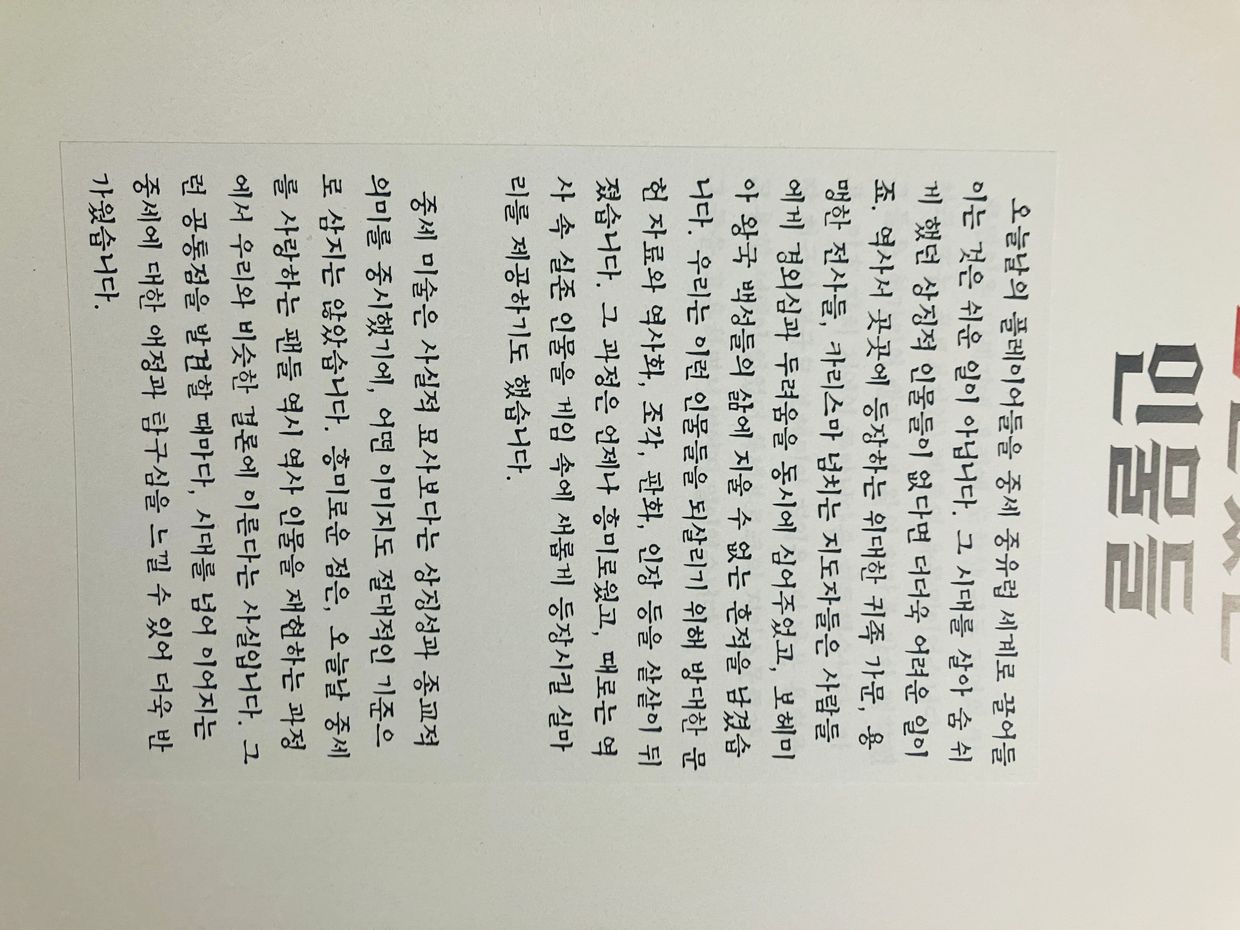 인물들
오늘날의 플레이어들을 중세 중유럽 세계로 끌어들
이는 것은 쉬운 일이 아닙니다. 그 시대를 살아 숨 쉬
게 했던 상징적 인물들이 없다면 더더욱 어려운 일이
죠. 역사서 곳곳에 등장하는 위대한 귀족 가문, 용
맹한 전사들, 카리스마 넘치는 지도자들은 사람들
에게 경외심과 두려움을 동시에 심어주었고, 보헤미
아 왕국 백성들의 삶에 지울 수 없는 흔적을 남겼습
니다. 우리는 이런 인물들을 되살리기 위해 방대한 문
헌 자료와 역사화, 조각, 판화, 인장 등을 샅샅이 뒤
졌습니다. 그 과정은 언제나 흥미로웠고, 때로는 역
사 속 실존 인물을 게임 속에 새롭게 등장시킬 실마
리를 제공하기도 했습니다.
중세 미술은 사실적 묘사보다는 상징성과 종교적
의미를 중시했기에, 어떤 이미지도 절대적인 기준으
로 삼지는 않았습니다. 흥미로운 점은, 오늘날 중세
를 사랑하는 팬들 역시 역사 인물을 재현하는 과정
에서 우리와 비슷한 결론에 이른다는 사실입니다. 그
런 공통점을 발견할 때마다, 시대를 넘어 이어지는
중세에 대한 애정과 탐구심을 느낄 수 있어 더욱 반
가웠습니다.